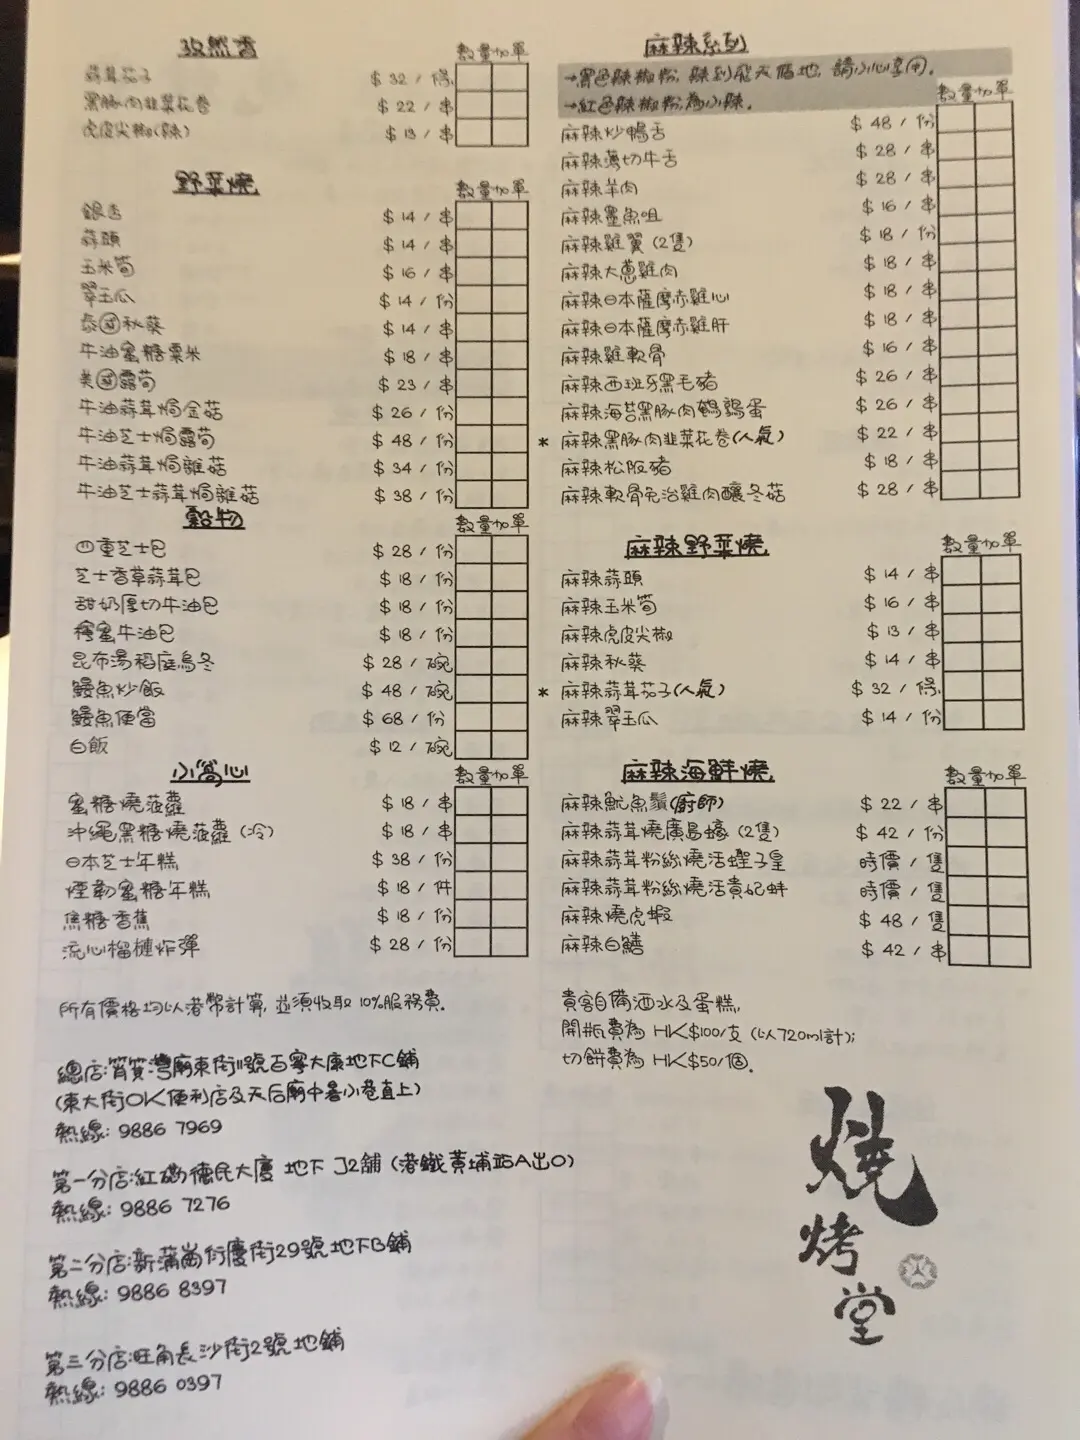 孜然香
數量 加單
蒜茸茄子 $ 32 / 條
黑豚肉韭菜花卷 $ 22 / 串
虎皮尖椒(辣) $ 13 / 串
野菜燒
數量 加單
銀杏 $ 14 / 串
蒜頭 $ 14 / 串
玉米筍 $ 16 / 串
翠玉瓜 $ 14 / 份
泰國秋葵 $ 14 / 串
牛油蜜糖粟米 $ 18 / 串
美國露筍 $ 23 / 串
牛油蒜茸焗金菇 $ 26 / 份
牛油芝士焗露筍 $ 48 / 份
牛油蒜茸焗雜菇 $ 34 / 份
牛油芝士蒜茸焗雜菇 $ 38 / 份
穀物
數量 加單
四重芝士包 $ 28 / 份
芝士香草蒜茸包 $ 18 / 份
甜奶厚切牛油包 $ 18 / 份
檸蜜牛油包 $ 18 / 份
昆布湯稻庭烏冬 $ 28 / 碗
鰻魚炒飯 $ 48 / 碗
鰻魚便當 $ 68 / 份
白飯 $ 12 / 碗
小窩心
數量 加單
蜜糖燒菠蘿 $ 18 / 串
沖繩黑糖燒菠蘿 (冷) $ 18 / 串
日本芝士年糕 $ 38 / 份
煙韌蜜糖年糕 $ 18 / 件
焦糖香蕉 $ 18 / 份
流心榴槤炸彈 $ 28 / 份
所有價格均以港幣計算, 並須收取 10%服務費.
總店:筲箕灣廟東街11號百寧大廈地下C鋪
(東大街OK便利店及天后廟中間小巷直上)
熱線: 9886 7969
第一分店:紅磡德民大廈 地下 J2舖 (港鐵黃埔站A出口)
熱線: 9886 7276
第二分店:新蒲崗衍慶街29號地下B鋪
熱線: 9886 8397
第三分店:旺角長沙街2號地鋪
熱線: 9886 0397
麻辣系列
→黑色辣椒粉, 辣到飛天遁地, 請小心享用.
→紅色辣椒粉為小辣.
數量 加單
麻辣炒鴨舌 $ 48 / 份
麻辣薄切牛舌 $ 28 / 串
麻辣羊肉 $ 28 / 串
麻辣墨魚咀 $ 16 / 串
麻辣雞翼 (2隻) $ 18 / 份
麻辣大蔥雞肉 $ 18 / 串
麻辣日本薩摩赤雞心 $ 18 / 串
麻辣日本薩摩赤雞肝 $ 18 / 串
麻辣雞軟骨 $ 16 / 串
麻辣西班牙黑毛豬 $ 26 / 串
麻辣海苔黑豚肉鵪鶉蛋 $ 26 / 串
* 麻辣黑豚肉韭菜花卷(人氣) $ 22 / 串
麻辣松阪豬 $ 18 / 串
麻辣軟骨免治雞肉釀冬菇 $ 28 / 串
麻辣野菜燒
數量 加單
麻辣蒜頭 $ 14 / 串
麻辣玉米筍 $ 16 / 串
麻辣虎皮尖椒 $ 13 / 串
麻辣秋葵 $ 14 / 串
* 麻辣蒜茸茄子(人氣) $ 32 / 條
麻辣翠玉瓜 $ 14 / 份
麻辣海鮮燒
數量 加單
麻辣魷魚鬚(廚師) $ 22 / 串
麻辣蒜茸燒廣島蠔 (2隻) $ 42 / 份
麻辣蒜茸粉絲燒活蟶子皇 時價 / 隻
麻辣蒜茸粉絲燒活貴妃蚌 時價 / 隻
麻辣燒虎蝦 $ 48 / 隻
麻辣白鱔 $ 42 / 串
貴客自備酒水及蛋糕,
開瓶費為 HK$100/支 (以720ml計);
切餅費為 HK$50/個.
燒
烤
堂